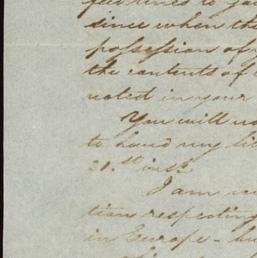 few lines to
since when the
possession of
the contents of
noted in your
You will
to hand my
21.st inst.
I am
tion respecting
in Europe -